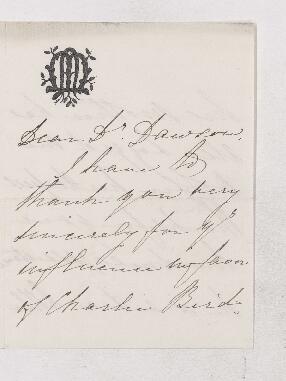 Dear Dr. Dawson,
I have to
thank you very
sincerely for yr
influence in favor
of Charlie Bird.